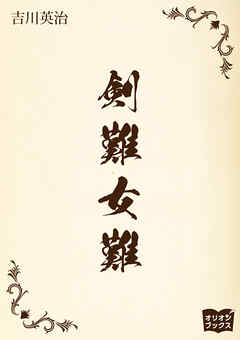 吉川英治
剣難女難
オリオン
ブックス